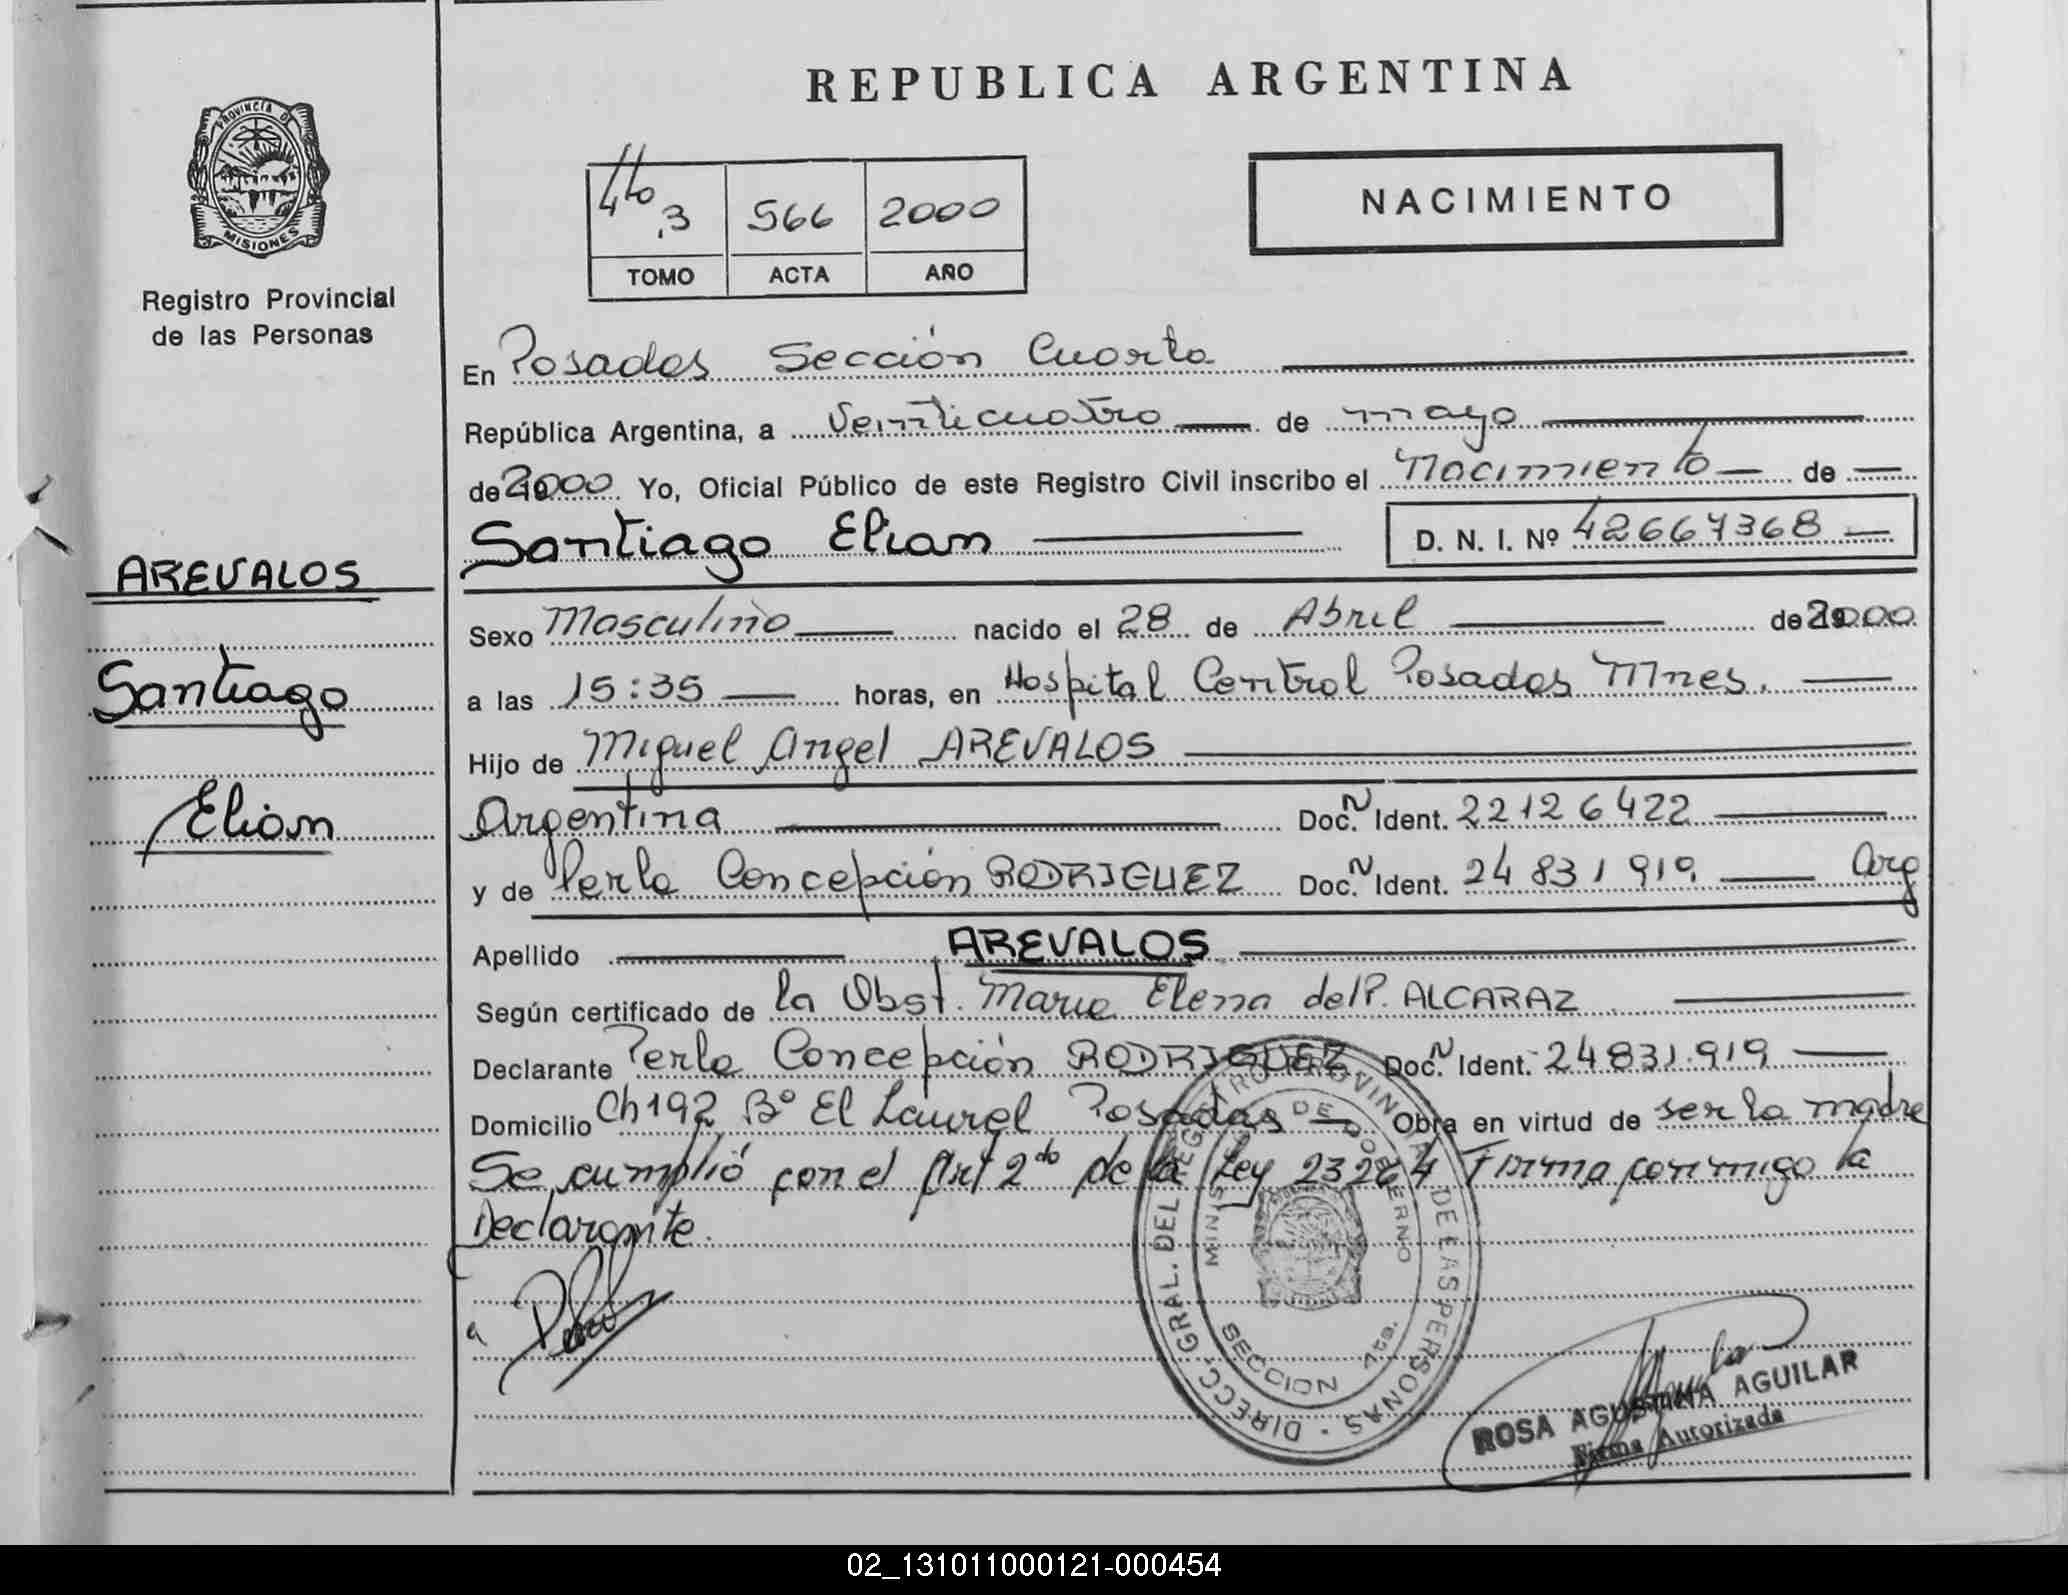 REPUBLICA ARGENTINA
PROVINCIA DE
MISIONES
Registro Provincial
de las Personas
4to 3 566 2000
TOMO ACTA AÑO
NACIMIENTO
En Posadas Sección Cuarta
República Argentina, a Veinticuatro de mayo
de 2000 Yo, Oficial Público de este Registro Civil inscribo el Nacimiento de
Santiago Elian D. N. I. Nº 42667368
AREVALOS
Santiago
Elian
Sexo Masculino nacido el 28 de Abril de 2000
a las 15:35 horas, en Hospital Central Posadas Mnes.
Hijo de Miguel Angel AREVALOS
Argentina Doc. N Ident. 22126422
y de Perla Concepción RODRIGUEZ Doc. N Ident. 24831919 Arg
Apellido AREVALOS
Según certificado de la Obst. Maria Elena del P. ALCARAZ
Declarante Perla Concepción RODRIGUEZ Doc. N Ident. 24831.919
Domicilio Ch 192 Bº El Laurel Posadas Obra en virtud de ser la madre
Se cumplió con el Art 2do de la Ley 23264 Firma conmigo la
Declarante.
DIRECC. GRAL. DEL REGISTRO PROVINCIAL DE LAS PERSONAS
MINIS. DE GOBIERNO
SECCION 4ta.
ROSA AGUSTINA AGUILAR
Firma Autorizada
02_131011000121-000454